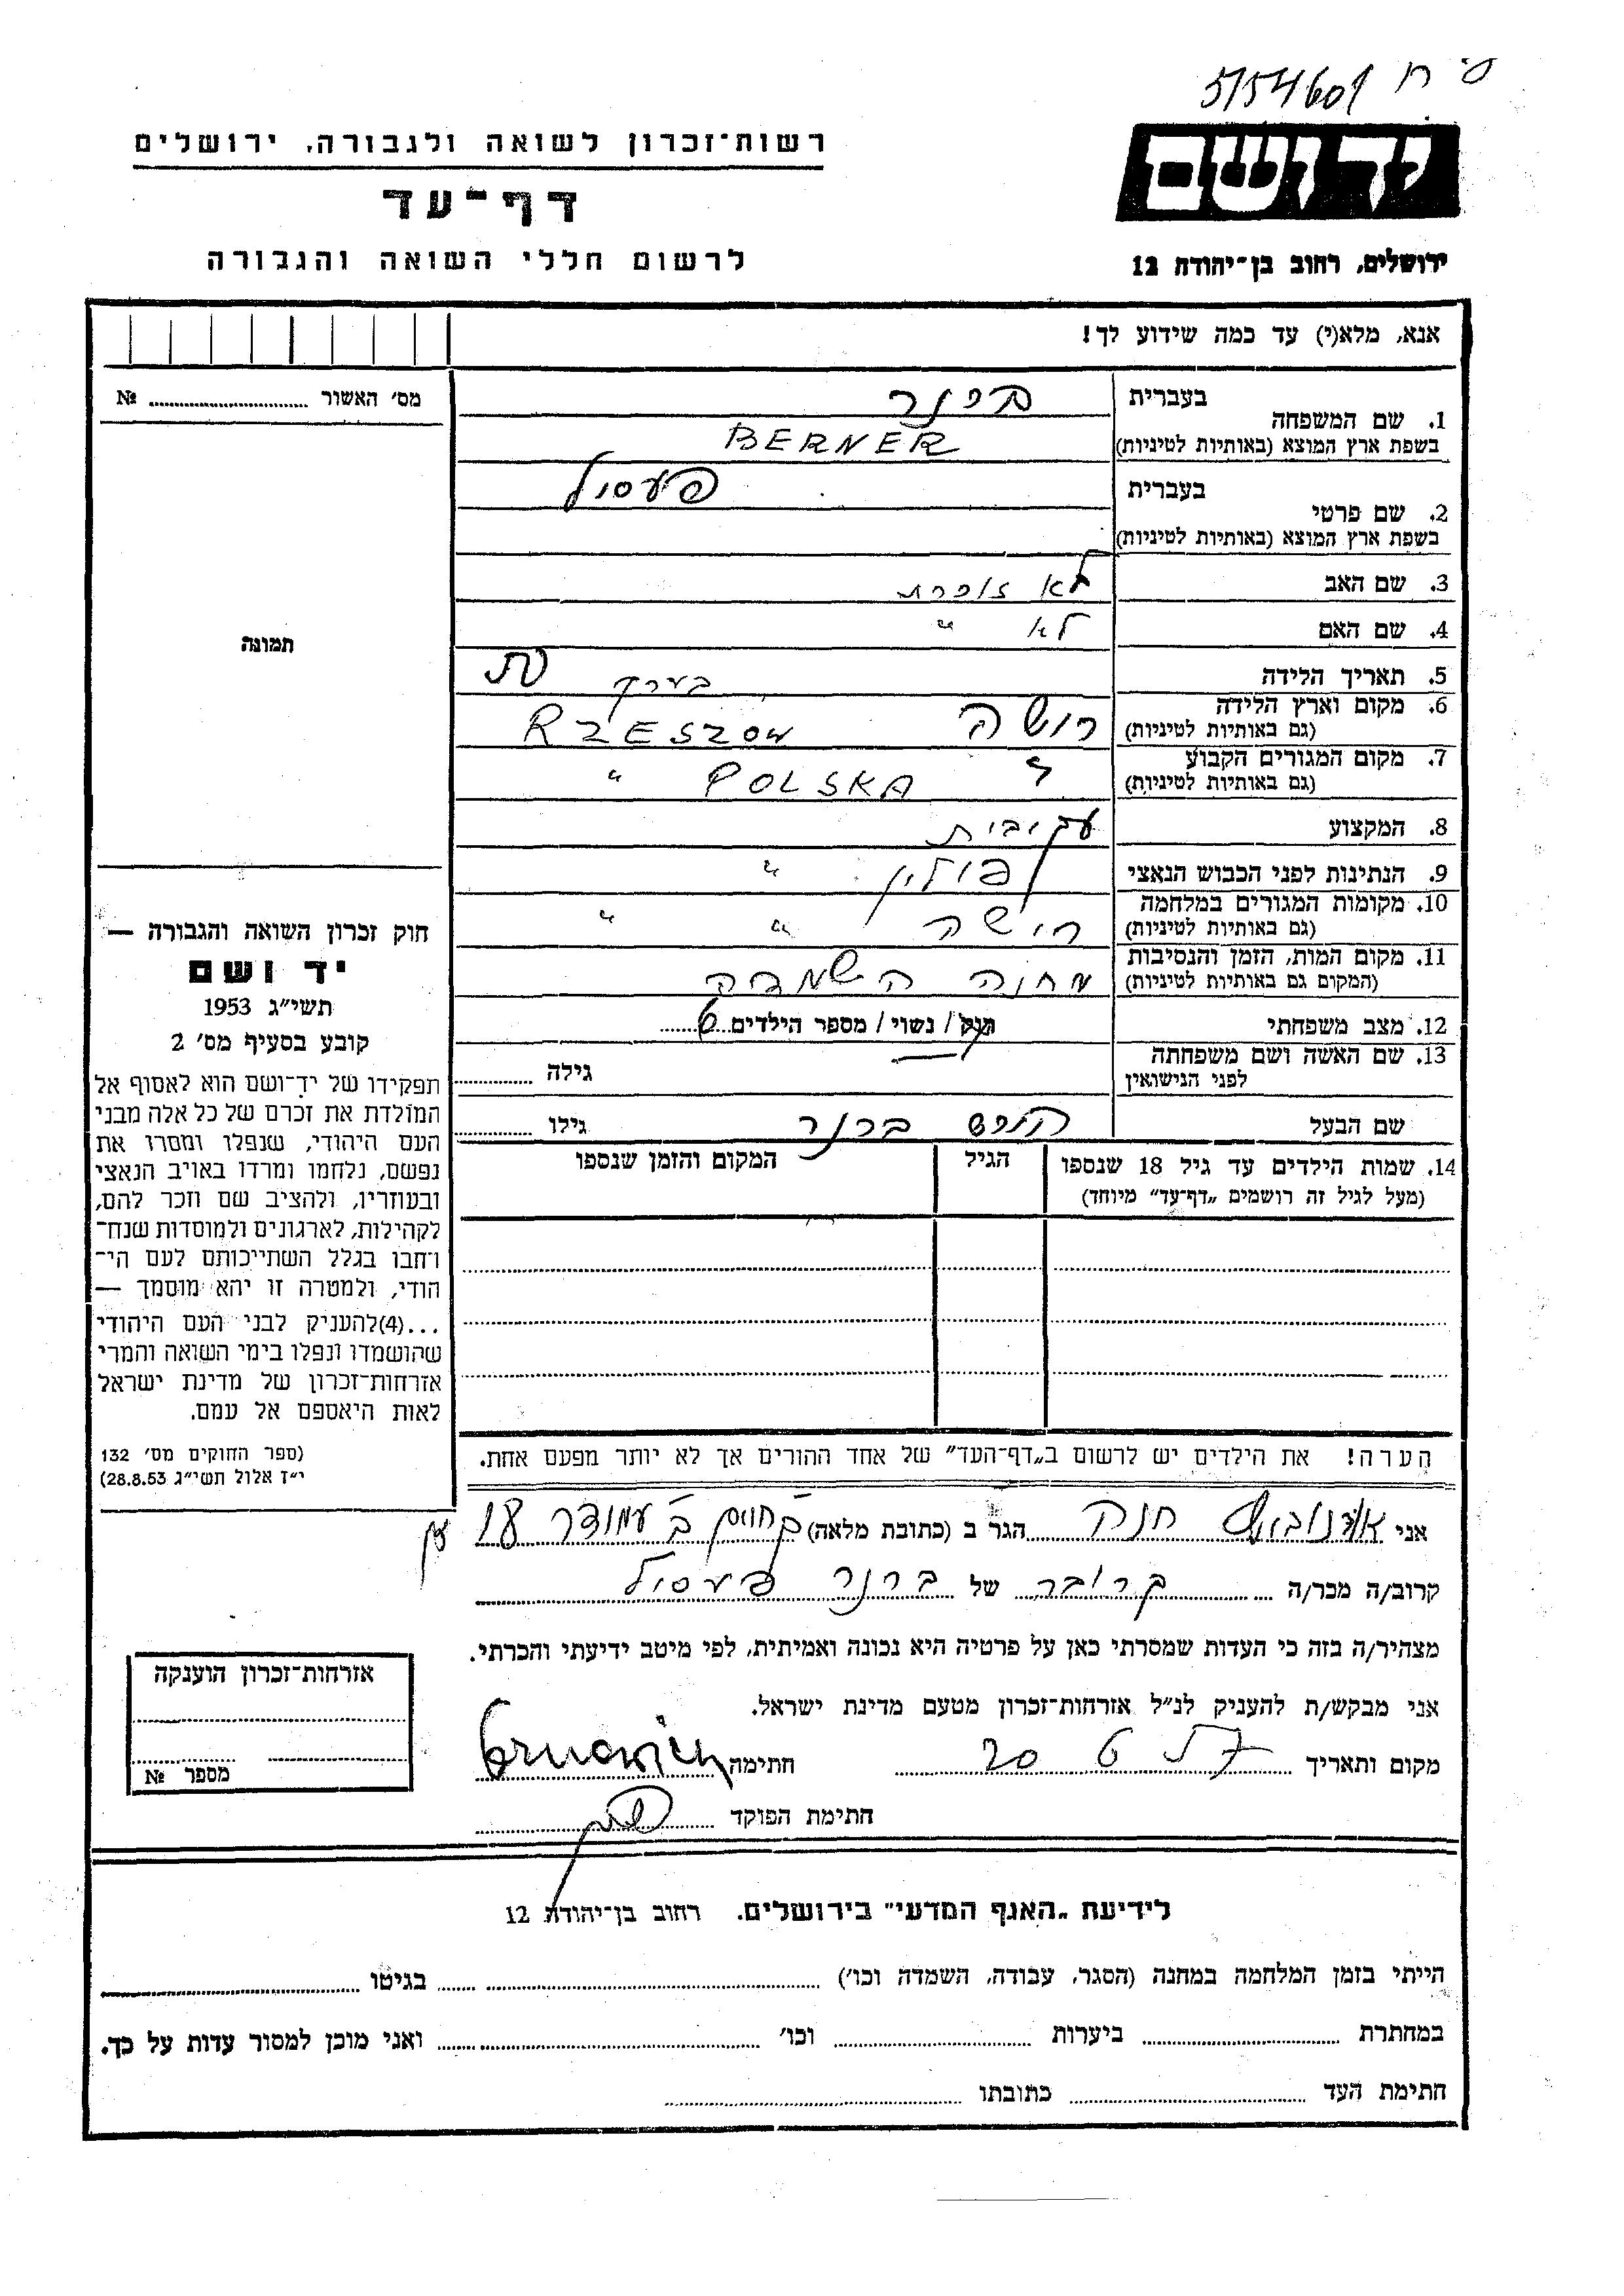 5/54601
יד ושם
רשות־זכרון לשואה ולגבורה, ירושלים
דף־עד
לרשום חללי השואה והגבורה
ירושלים, רחוב בן־יהודה 12
אנא, מלא(י) עד כמה שידוע לך!
מס׳ האשור № 
תמונה
1. שם המשפחה בעברית ברנר
בשפת ארץ המוצא (באותיות לטיניות) BERNER
2. שם פרטי בעברית פעסיל
בשפת ארץ המוצא (באותיות לטיניות)
3. שם האב לא זוכרת
4. שם האם לא ״
5. תאריך הלידה בערך
6. מקום וארץ הלידה (גם באותיות לטיניות) רושה RZESZOW
7. מקום המגורים הקבוע (גם באותיות לטיניות) ״ POLSKA ״
8. המקצוע
9. הנתינות לפני הכבוש הנאצי פולין ״
10. מקומות המגורים במלחמה (גם באותיות לטיניות) רישה ״ ״
11. מקום המות, הזמן והנסיבות (המקום גם באותיות לטיניות) מחנה השמדה
12. מצב משפחתי רווק / נשוי / מספר הילדים 6
13. שם האשה ושם משפחתה לפני הנישואין גילה
שם הבעל הירש ברנר גילו
14. שמות הילדים עד גיל 18 שנספו הגיל המקום והזמן שנספו
(מעל לגיל זה רושמים „דף־עד״ מיוחד)
הערה! את הילדים יש לרשום ב„דף־העד״ של אחד ההורים אך לא יותר מפעם אחת.
חוק זכרון השואה והגבורה —
יד ושם
תשי״ג 1953
קובע בסעיף מס׳ 2
תפקידו של יד־ושם הוא לאסוף אל
המולדת את זכרם של כל אלה מבני
העם היהודי, שנפלו ומסרו את
נפשם, נלחמו ומרדו באויב הנאצי
ובעוזריו, ולהציב שם וזכר להם,
לקהילות, לארגונים ולמוסדות שנח־
רבו בגלל השתייכותם לעם הי־
הודי, ולמטרה זו יהא מוסמך —
...(4) להעניק לבני העם היהודי
שהושמדו ונפלו בימי השואה והמרי
אזרחות־זכרון של מדינת ישראל
לאות היאספם אל עמם.
(ספר החוקים מס׳ 132
י״ז אלול תשי״ג 28.8.53)
אני חנה הגר ב (כתובת מלאה) 18
קרוב/ה מכר/ה קרובה של ברנר פעסיל
מצהיר/ה בזה כי העדות שמסרתי כאן על פרטיה היא נכונה ואמיתית, לפי מיטב ידיעתי והכרתי.
אני מבקש/ת להעניק לנ״ל אזרחות־זכרון מטעם מדינת ישראל.
מקום ותאריך חתימה
חתימת הפוקד
אזרחות־זכרון הוענקה
מספר №
לידיעת „האגף המדעי״ בירושלים. רחוב בן־יהודה 12
הייתי בזמן המלחמה במחנה (הסגר, עבודה, השמדה וכו׳) בגיטו
במחתרת ביערות וכו׳ ואני מוכן למסור עדות על כך.
חתימת העד כתובתו